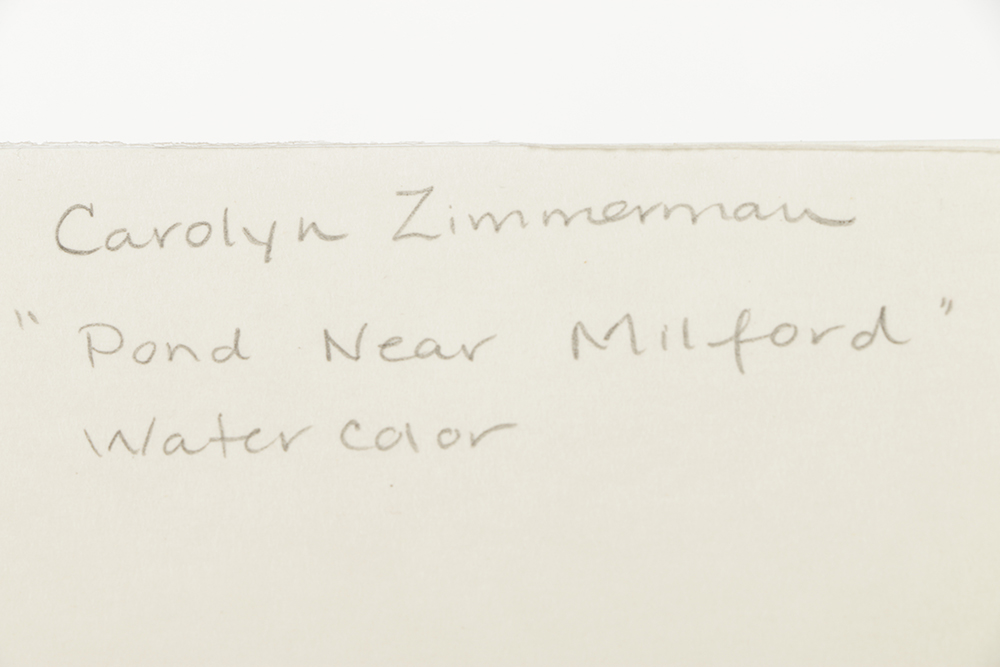 Carolyn Zimmerman
"Pond Near Milford"
Water color